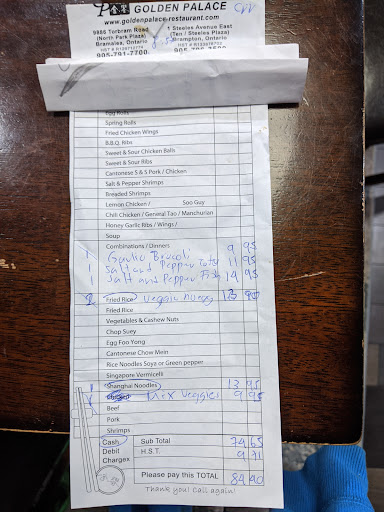 GOLDEN PALACE
www.goldenpalace-restaurant.com
9886 Torbram Road 1 Steeles Avenue East
(North Park Plaza) (Ten / Steeles Plaza)
Bramalea, Ontario Brampton, Ontario
905-791-7700
Egg Rolls
Spring Rolls
Fried Chicken Wings
B.B.Q. Ribs
Sweet & Sour Chicken Balls
Sweet & Sour Ribs
Cantonese S & S Pork / Chicken
Salt & Pepper Shrimps
Breaded Shrimps
Lemon Chicken / Soo Guy
Chili Chicken / General Tao / Manchurian
Honey Garlic Ribs / Wings /
Soup
Combinations / Dinners
1 Garlic Brocoli 9 95
1 Salt and Pepper Tofu 11 95
1 Salt and Pepper Fish 14 95
Fried Rice Veggie 13 90
Fried Rice
Vegetables & Cashew Nuts
Chop Suey
Egg Foo Yong
Cantonese Chow Mein
Rice Noodles Soya or Green pepper
Singapore Vermicelli
1 Shanghai Noodles 13 95
Mix Veggies 9 95
Beef
Pork
Shrimps
Cash Sub Total 74.65
Debit H.S.T. 9.71
Chargex
Please pay this TOTAL 84.40
Thank you! Call again!